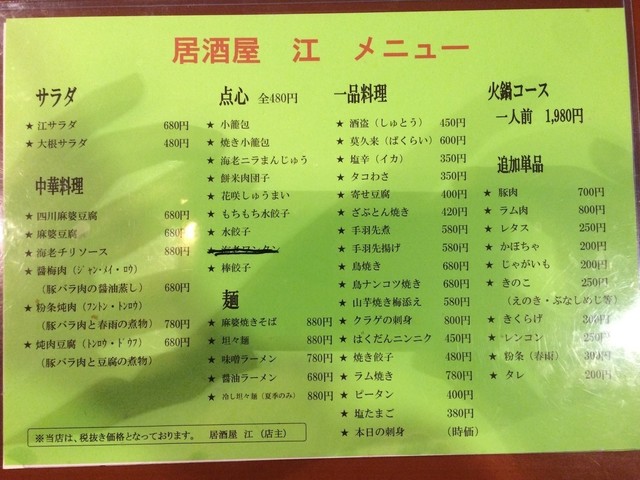 居酒屋 江 メニュー
サラダ
★ 江サラダ 680円
★ 大根サラダ 480円
中華料理
★ 四川麻婆豆腐 680円
★ 麻婆豆腐 680円
★ 海老チリソース 880円
★ 醬梅肉（ジャン・メイ・ロウ）
（豚バラ肉の醤油蒸し） 680円
★ 粉条炖肉（フントン・トンロウ）
（豚バラ肉と春雨の煮物） 780円
★ 炖肉豆腐（トンロウ・ドウフ） 680円
（豚バラ肉と豆腐の煮物）
点心 全480円
★ 小籠包
★ 焼き小籠包
★ 海老ニラまんじゅう
★ 餅米肉団子
★ 花咲しゅうまい
★ もちもち水餃子
★ 水餃子
★ 海老ワンタン
★ 棒餃子
麺
★ 麻婆焼きそば 880円
★ 坦々麺 880円
★ 味噌ラーメン 780円
★ 醤油ラーメン 680円
★ 冷し坦々麺（夏季のみ） 880円
一品料理
★ 酒盗（しゅとう） 450円
★ 莫久来（ばくらい） 600円
★ 塩辛（イカ） 350円
★ タコわさ 350円
★ 寄せ豆腐 400円
★ ざぶとん焼き 420円
★ 手羽先煮 580円
★ 手羽先揚げ 580円
★ 鳥焼き 680円
★ 鳥ナンコツ焼き 680円
★ 山芋焼き梅添え 580円
★ クラゲの刺身 800円
★ ばくだんニンニク 450円
★ 焼き餃子 480円
★ ラム焼き 780円
★ ピータン 400円
★ 塩たまご 380円
★ 本日の刺身 （時価）
火鍋コース
一人前 1,980円
追加単品
★ 豚肉 700円
★ ラム肉 800円
★ レタス 250円
★ かぼちゃ 200円
★ じゃがいも 200円
★ きのこ 250円
（えのき・ぶなしめじ等）
★ きくらげ 300円
★ レンコン 250円
★ 粉条（春雨） 300円
★ タレ 200円
※当店は、税抜き価格となっております。 居酒屋 江（店主）